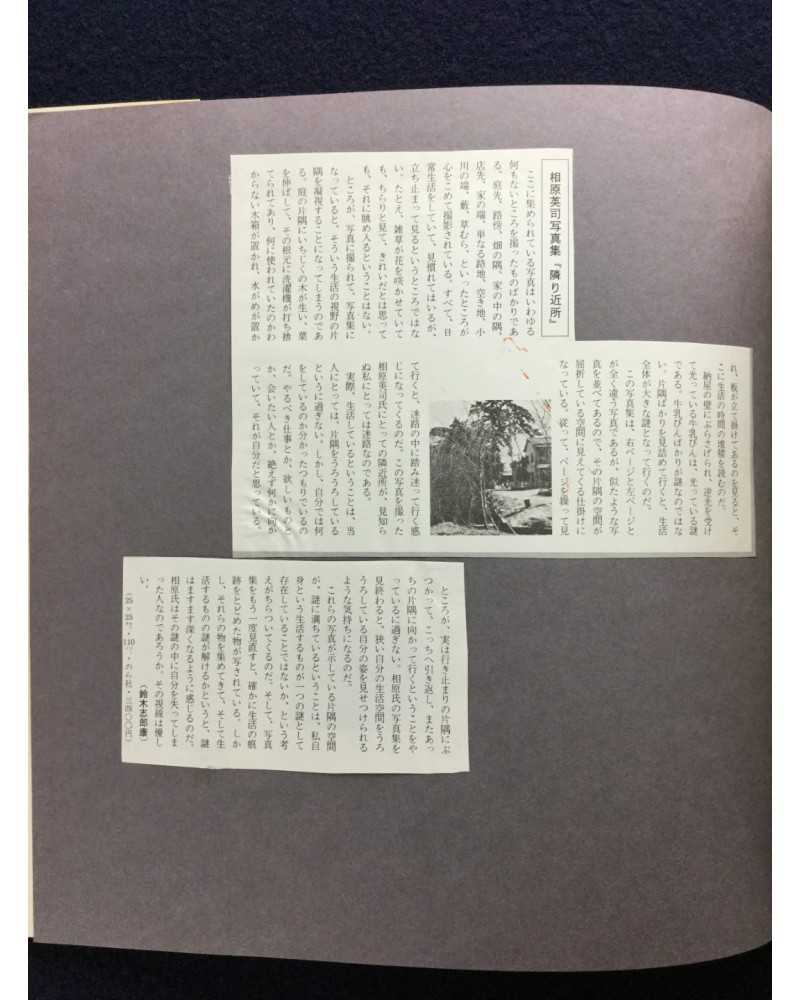 相原英司写真集『隣り近所』
ここに集められている写真はいわゆる
何もないところを撮ったものばかりであ
る。庭先、路傍、畑の隅、家の中の隅、
店先、家の端、単なる路地、空き地、小
川の端、藪、草むら、といったところが
心をこめて撮影されている。すべて、日
常生活をしていて、見慣れてはいるが、
立ち止まって見るというところではな
い。たとえ、雑草が花を咲かせていて
も、ちらりと見て、きれいだとは思って
も、それに眺め入るということはない。
ところが、写真に撮られて、写真集に
なっていると、そういう生活の視野の片
隅を凝視することになってしまうのであ
る。庭の片隅にいちじくの木が生い、葉
を伸ばして、その根元に洗濯機が打ち捨
てられてあり、何に使われていたのかわ
からない木箱が置かれ、水がめが置か
れ、板が立て掛けてあるのを見ると、そ
こに生活の時間の堆積を読むのだ。
納屋の壁にぶらさげられ、逆光を受け
て光っている牛乳びんは、光っている謎
である。牛乳びんばかりが謎なのではな
い。片隅ばかりを見詰めて行くと、生活
全体が大きな謎となって行くのだ。
この写真集は、右ページと左ページと
が全く違う写真であるが、似たような写
真を並べてあるので、その片隅の空間が
屈折している空間に見えてくる仕掛けに
なっている。従って、ページを操って見
て行くと、迷路の中に踏み迷って行く感
じになってくるのだ。この写真を撮った
相原英司氏にとっての隣近所が、見知ら
ぬ私にとっては迷路なのである。
実際、生活しているということは、当
人にとっては、片隅をうろうろしている
というに過ぎない。しかし、自分では何
をしているのか分かったつもりでいるの
だ。やるべき仕事とか、欲しいものと
か、会いたい人とか、絶えず何かに向か
っていて、それが自分だと思っている。
ところが、実は行き止まりの片隅にぶ
つかって、こっちへ引き返し、またあっ
ちの片隅に向かって行くということをや
っているに過ぎない。相原氏の写真集を
見終わると、狭い自分の生活空間をうろ
うろしている自分の姿を見せつけられる
ような気持ちになるのだ。
これらの写真が示している片隅の空間
が、謎に満ちているということは、私自
身という生活するものが一つの謎として
存在していることではないか、という考
えがちらついてくるのだ。そして、写真
集をもう一度見直すと、確かに生活の痕
跡をとどめた物が写されている。しか
し、それらの物を集めてきて、そして生
活するものの謎が解けるかというと、謎
はますます深くなるように感じるのだ。
相原氏はその謎の中に自分を失ってしま
った人なのであろうか。その視線は優し
い。
（鈴木志郎康）
（25×25㌢・110㌻・のら社・三四〇〇円）